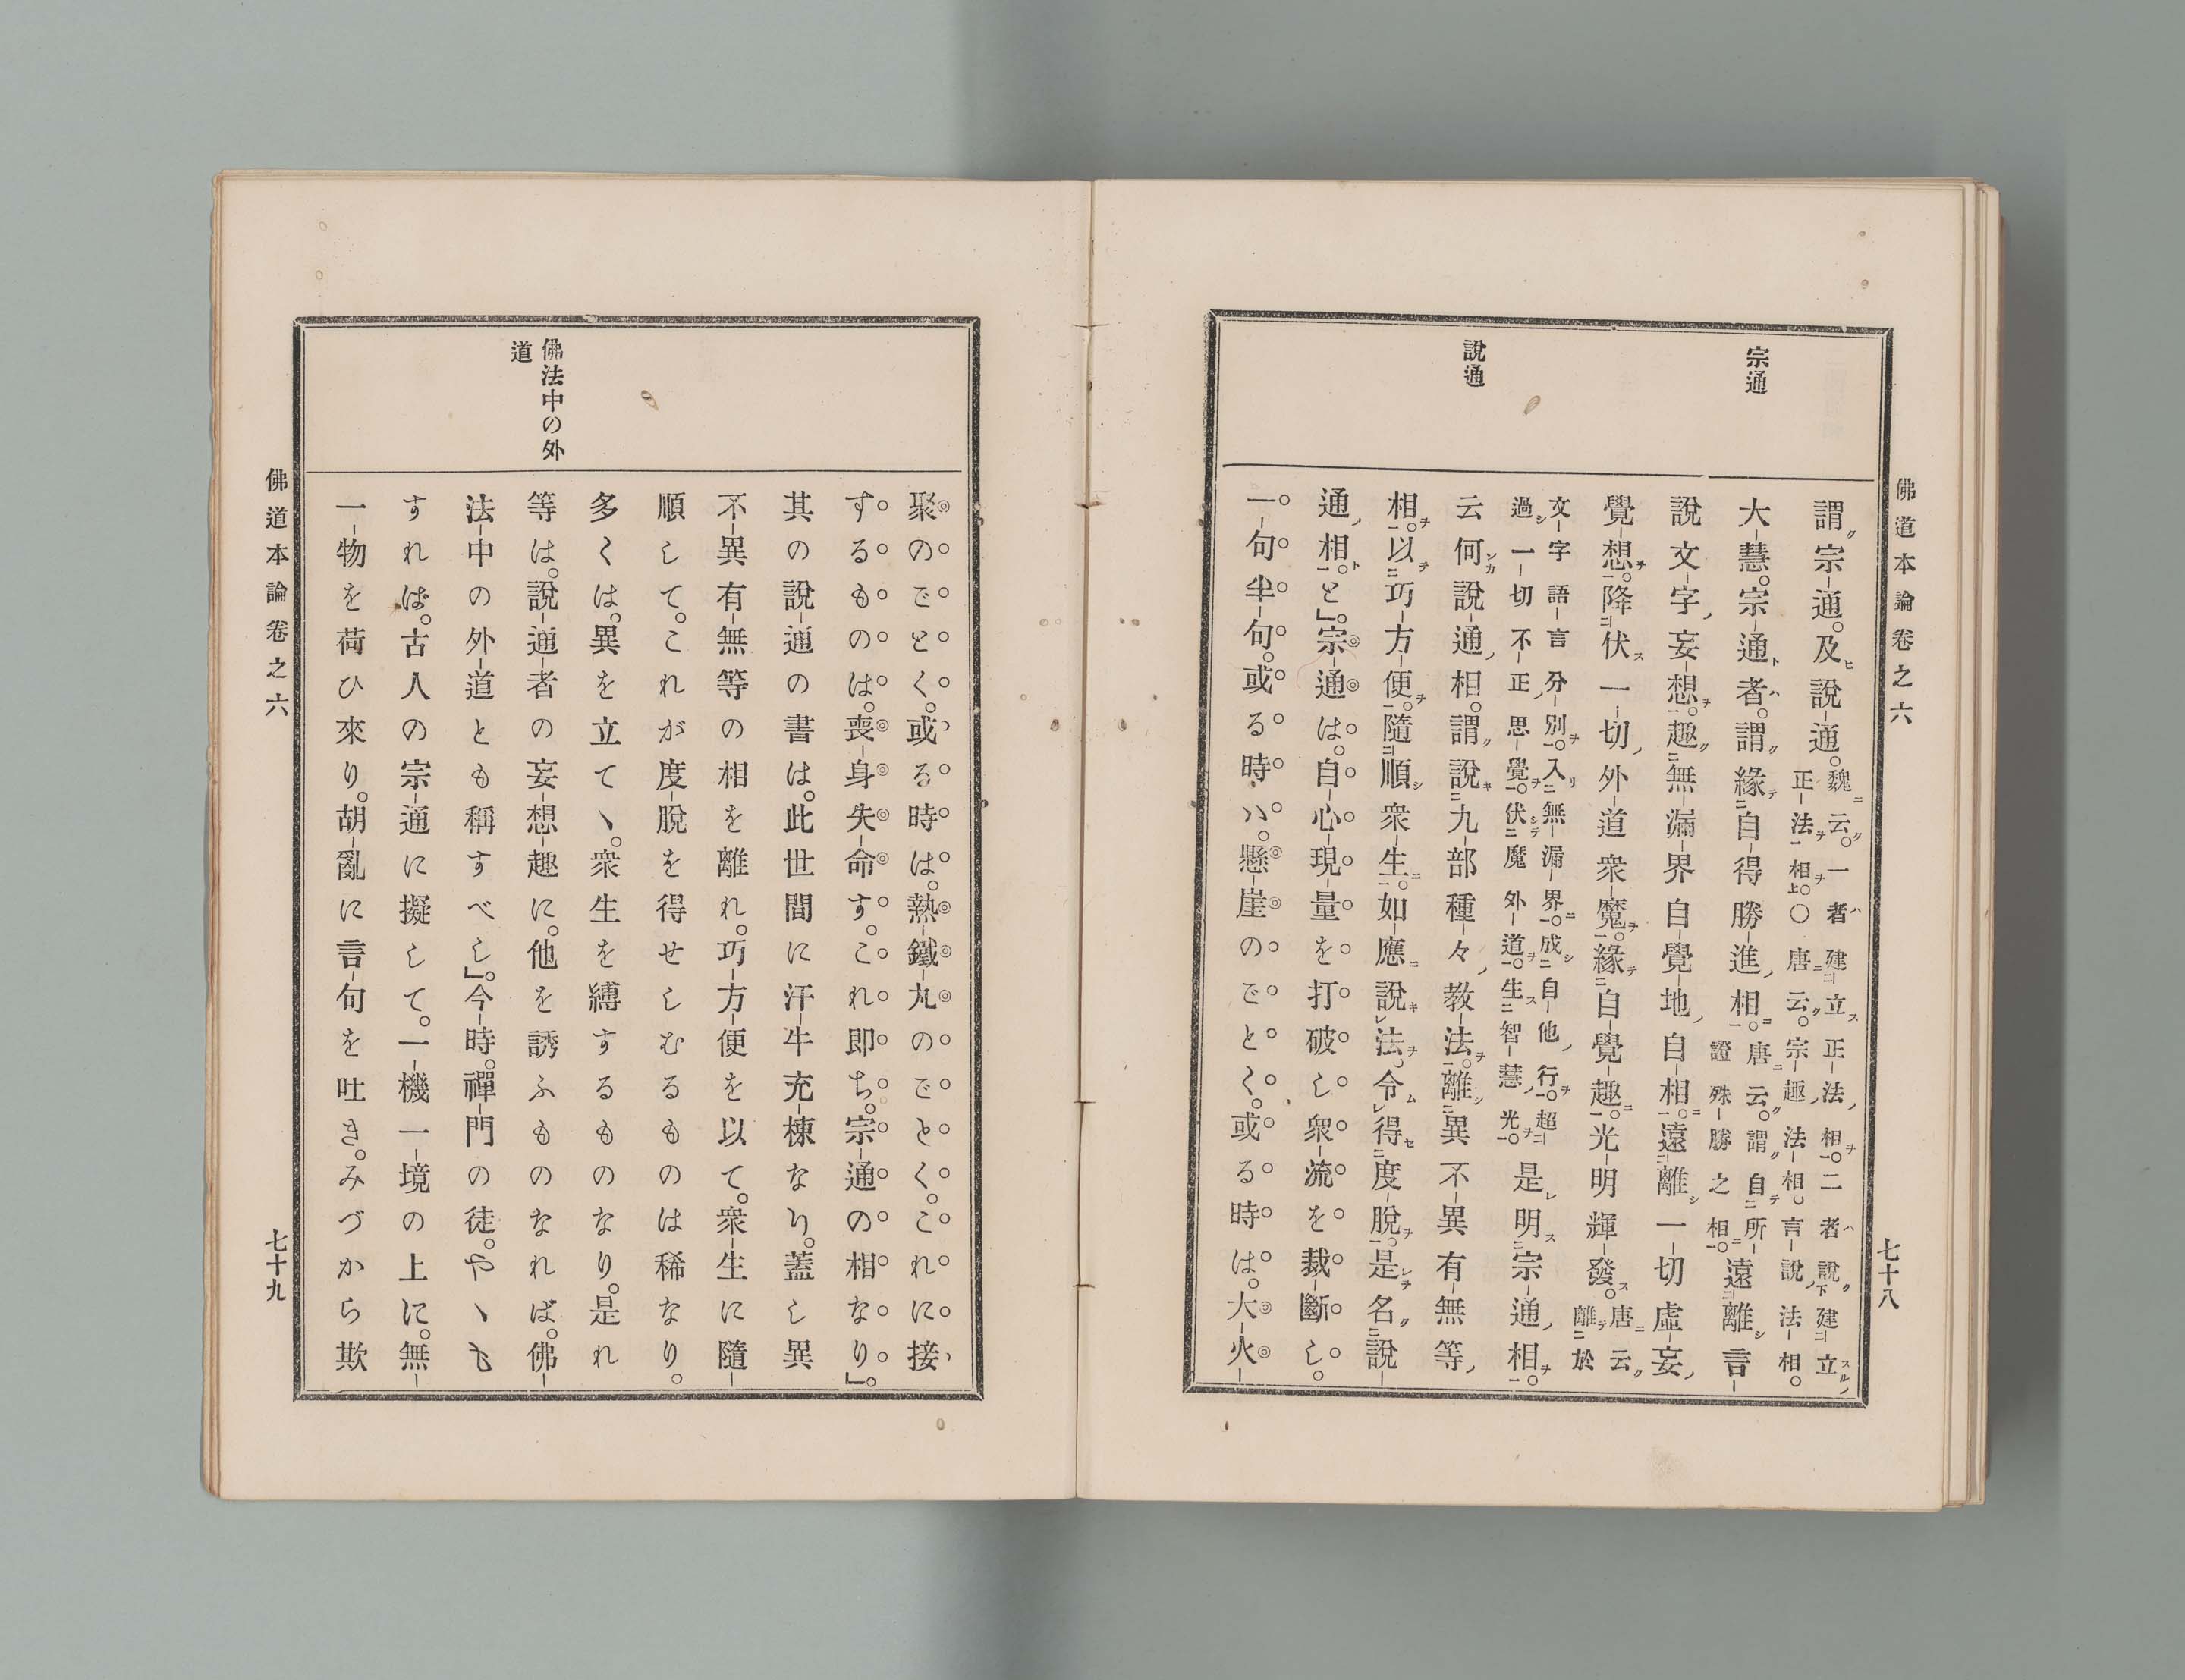 佛道本論卷之六
七十八
宗通
說通
謂宗通。及說通。魏云。一者建立正法相。二者說建立
正法相。〇唐云。宗趣法相。言說法相。
大慧。宗通者。謂緣自得勝進相。唐云。謂自所
證殊勝之相。遠離言
說文字妄想。趣無漏界自覺地自相。遠離一切虛妄
覺想。降伏一切外道衆魔。緣自覺趣。光明輝發。唐云。
離於
文字語言分別。入無漏界。成自他行。超
過一切不正思覺。伏魔外道。生智慧光。是明宗通相。
云何說通相。謂說九部種々教法。離異不異有無等
相。以巧方便。隨順衆生。如應說法。令得度脫。是名說
通相。と」。宗通は。自心現量を打破し衆流を裁斷し。
一句半句。或る時ハ。懸崖のごとく。或る時は。大火
聚のごとく。或る時は。熱鐵丸のごとく。これに接
するものは。喪身失命す。これ即ち。宗通の相なり」。
其の說通の書は。此世間に汗牛充棟なり。蓋し異
不異有無等の相を離れ。巧方便を以て。衆生に隨
順して。これが度脫を得せしむるものは稀なり。
多くは。異を立てヽ。衆生を縛するものなり。是れ
等は。說通者の妄想趣に。他を誘ふものなれば。佛
法中の外道とも稱すべし」。今時。禪門の徒。やヽも
すれば。古人の宗通に擬して。一機一境の上に。無
一物を荷ひ來り。胡亂に言句を吐き。みづから欺
佛法中の外
道
佛道本論卷之六
七十九